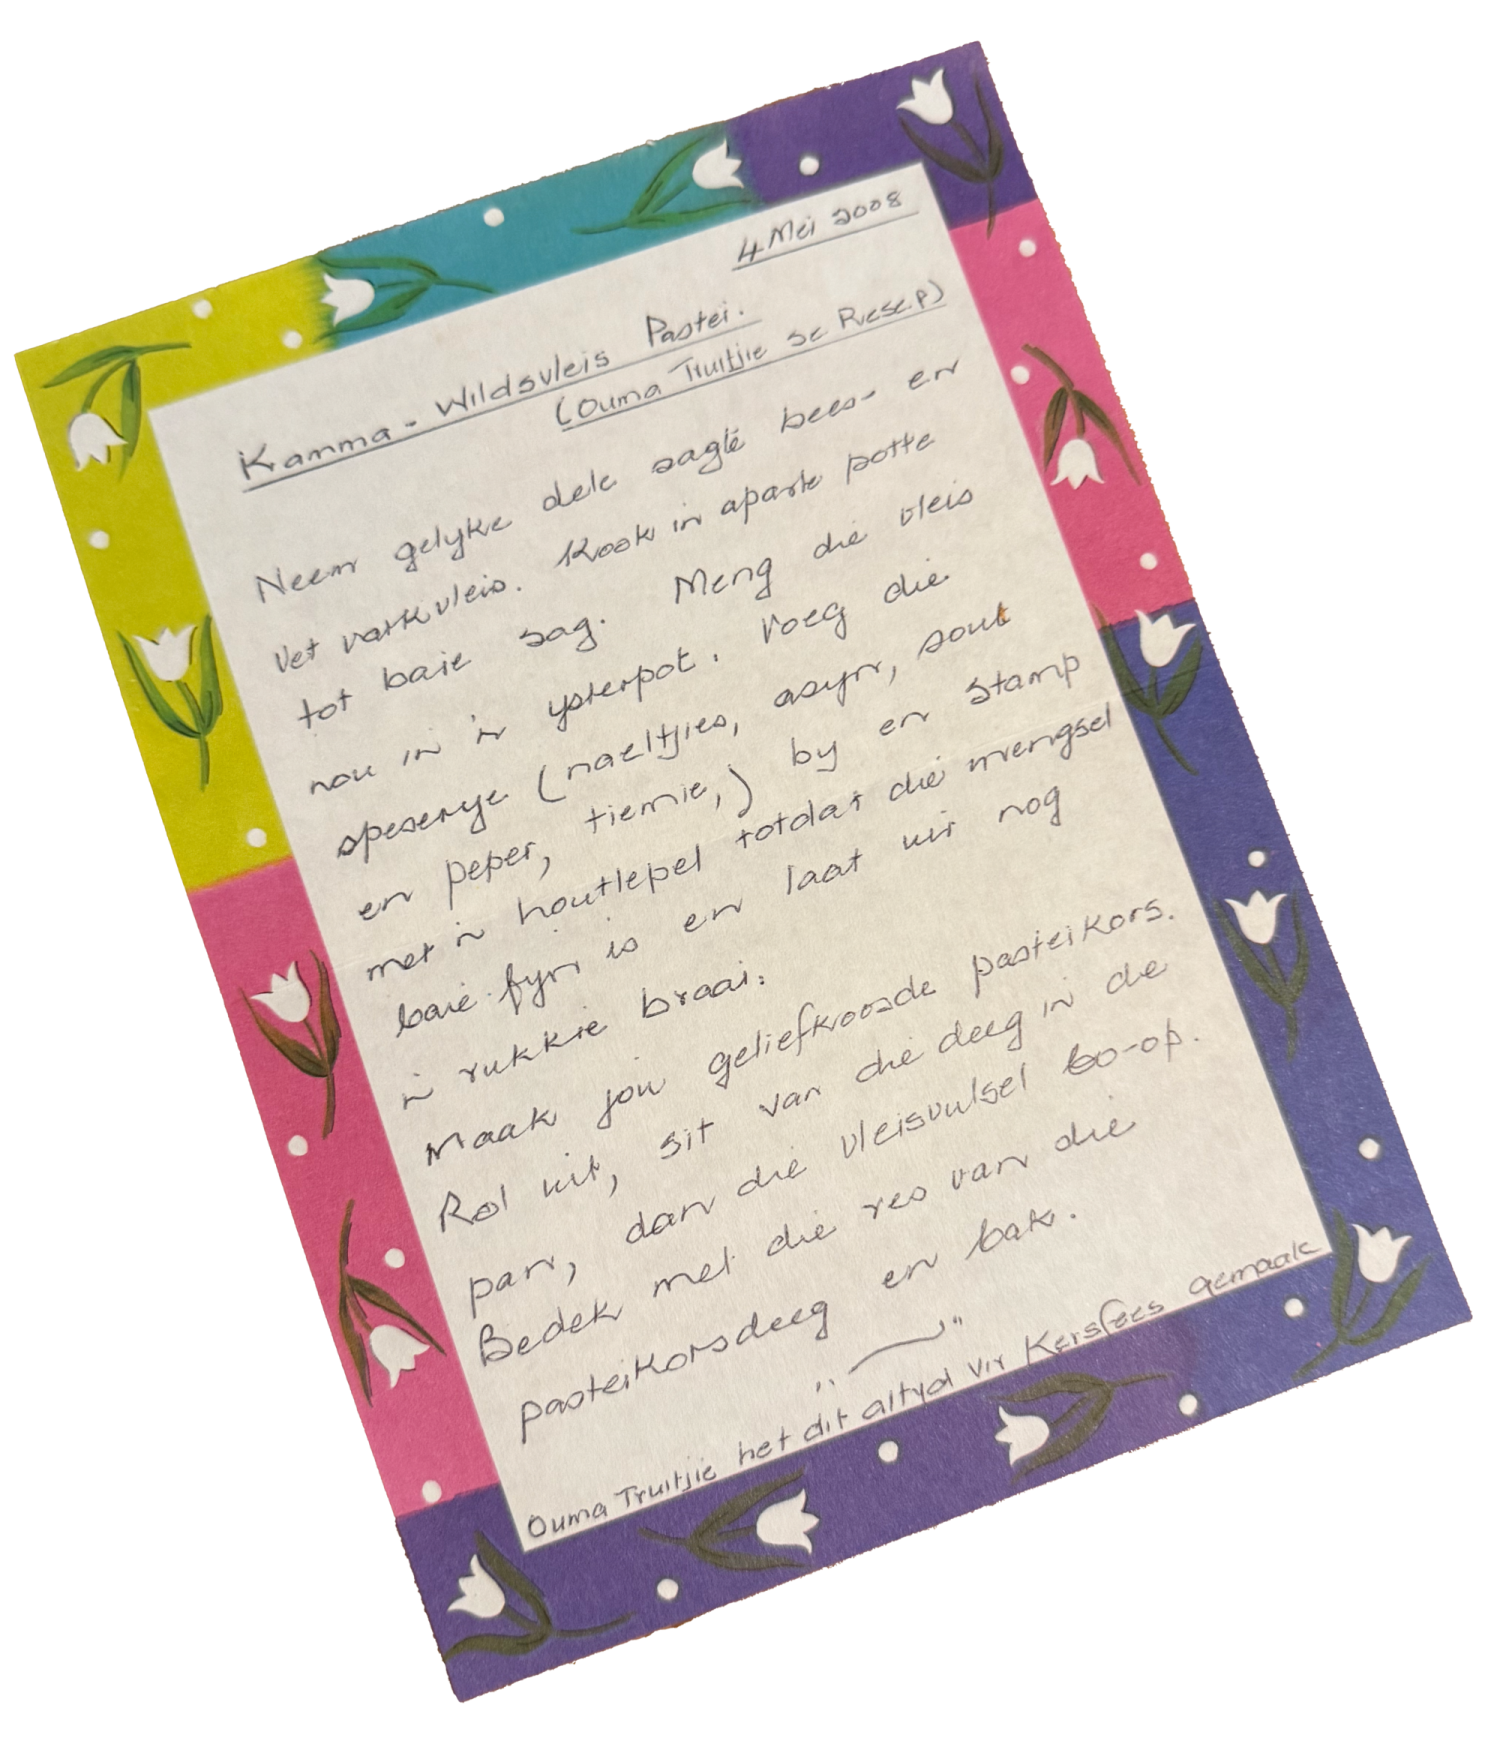 4 Mei 2008
Kamma - Wildsvleis Pastei.
(Ouma Truitjie se Resep)
Neem gelyke dele sagte bees- en
Vet varkvleis. Kook in aparte potte
tot baie sag. Meng die vleis
nou in 'n ysterpot. Voeg die
speserye (naeltjies, asyn, sout
en peper, tiemie,) by en stamp
met 'n houtlepel totdat die mengsel
baie fyn is en laat uit nog
'n rukkie braai.
Maak jou geliefkoosde pasteikors.
Rol uit, sit van die deeg in die
pan, dan die vleisvulsel bo-op.
Bedek met die res van die
pasteikorsdeeg en bak.
Ouma Truitjie het dit altyd vir Kersfees gemaak